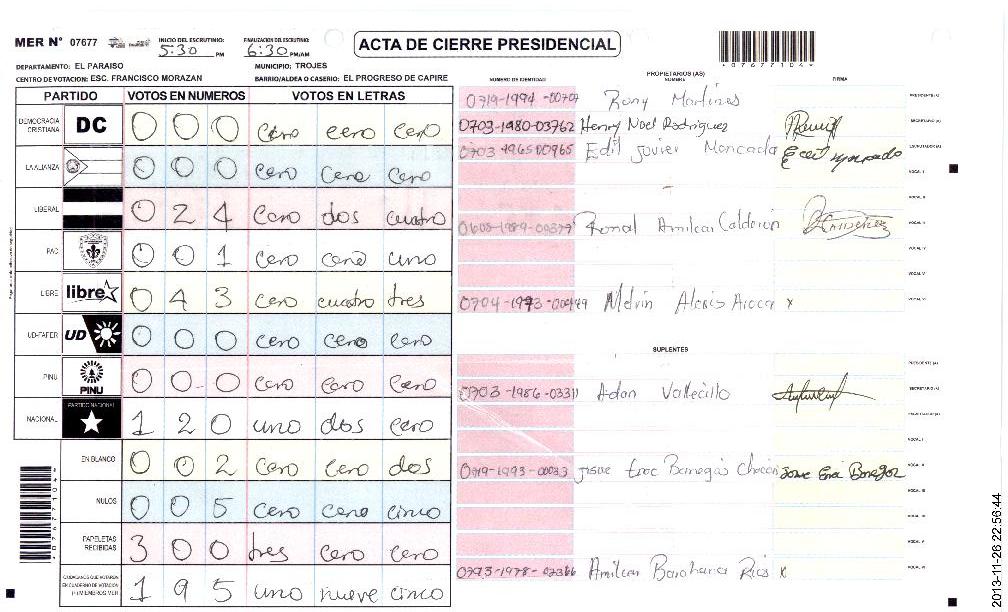 MER N° 07677 INICIO DEL ESCRUTINIO: 5:30 PM FINALIZACION DEL ESCRUTINIO: 6:30 PM/AM
ACTA DE CIERRE PRESIDENCIAL
*07677104*
DEPARTAMENTO: EL PARAISO MUNICIPIO: TROJES
CENTRO DE VOTACION: ESC. FRANCISCO MORAZAN BARRIO/ALDEA O CASERIO: EL PROGRESO DE CAPIRE
PROPIETARIOS (AS)
NUMERO DE IDENTIDAD NOMBRE FIRMA
PARTIDO VOTOS EN NUMEROS VOTOS EN LETRAS
DEMOCRACIA CRISTIANA DC 0 0 0 cero cero cero
LA ALIANZA 0 0 0 cero cero cero
LIBERAL 0 2 4 cero dos cuatro
PAC 0 0 1 cero cero uno
LIBRE libre 0 4 3 cero cuatro tres
UD-FAPER UD 0 0 0 cero cero cero
PINU PINU 0 0 0 cero cero cero
NACIONAL PARTIDO NACIONAL 1 2 0 uno dos cero
EN BLANCO 0 0 2 cero cero dos
NULOS 0 0 5 cero cero cinco
PAPELETAS RECIBIDAS 3 0 0 tres cero cero
CIUDADANOS QUE VOTARON EN CUADERNO DE VOTACION (+) MIEMBROS MER 1 9 5 uno nueve cinco
*07677104*
0719-1994-00707 Rony Martines PRESIDENTE (A)
0703-1980-03762 Henry Noel Rodriguez SECRETARIO (A)
0703 1965 00965 Edil Javier Moncada ESCRUTADOR (A)
VOCAL I
VOCAL II
Ronal Amilcar Calderon VOCAL III
VOCAL IV
VOCAL V
0704-1993-00449 Melvin Alexis x VOCAL VI
SUPLENTES
PRESIDENTE (A)
0703-1986-03311 Adan Vallecillo SECRETARIO (A)
ESCRUTADOR (A)
VOCAL I
0719-1993-00033 Josue Eroc Banegas Chacon VOCAL II
VOCAL III
VOCAL IV
VOCAL V
Amilcar Barahona Rios x VOCAL VI
2013-11-28 22:56:44